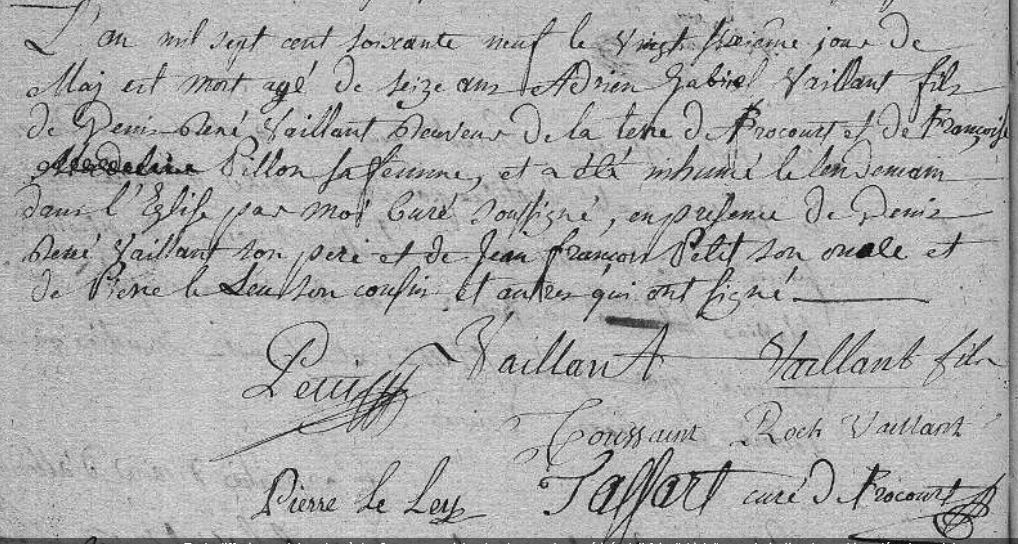 L'an mil sept cent soixante neuf le vingt jour de
Maj est mort agé de seize ans Adrien Gabriel Vaillant fils
de Denis René Vaillant Receveur de la terre de Frocourt et de Françoise
Pillon sa femme, et a été inhumé le lendemain
dans l'Eglise par moi Curé soussigné, en presence de Denis
René Vaillant son pere et de Jean françois Petit son oncle et
de Pierre le Leu son cousin et autres qui ont signé
Petit Vaillant Vaillant fils
Toussaint Roch Vaillant
Pierre Le Leu Taffart curé De Frocourt